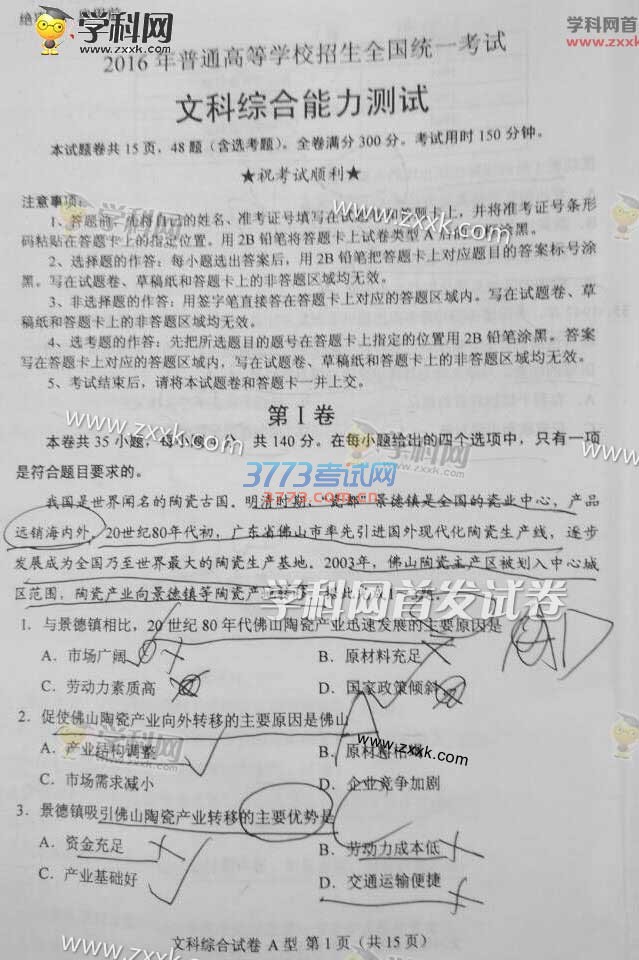 学科网
www.zxxk.com
学科网
www.zxxk.
2016年普通高等学校招生全国统一考试
文科综合能力测试
本试题卷共15页，48题（含选考题）。全卷满分300分。考试用时150分钟。
★祝考试顺利★
学科网
www.zxxk.com
注意事项：
1、答题前，先将自己的姓名、准考证号填写在试题卷和答题卡上，并将准考证号条形
码粘贴在答题卡上的指定位置。用2B铅笔将答题卡上试卷类型A后的方框涂黑。
2、选择题的作答：每小题选出答案后，用2B铅笔把答题卡上对应题目的答案标号涂
黑。写在试题卷、草稿纸和答题卡上的非答题区域均无效。
3、非选择题的作答：用签字笔直接答在答题卡上对应的答题区域内。写在试题卷、草
稿纸和答题卡上的非答题区域均无效。
4、选考题的作答：先把所选题目的题号在答题卡上指定的位置用2B铅笔涂黑。答案
写在答题卡上对应的答题区域内，写在试题卷、草稿纸和答题卡上的非答题区域均无效。
5、考试结束后，请将本试题卷和答题卡一并上交。
第Ⅰ卷
www.zxxk.com
学科网
本卷共35小题，每小题 分，共140分。在每小题给出的四个选项中，只有一项
是符合题目要求的。
3773考试网
www.3773.com.cn
我国是世界闻名的陶瓷古国。明清时期，“瓷都”景德镇是全国的瓷业中心，产品
远销海内外。20世纪80年代初，广东省佛山市率先引进国外现代化陶瓷生产线，逐步
发展成为全国乃至世界最大的陶瓷生产基地。2003年，佛山陶瓷主产区被划入中心城
区范围，陶瓷产业向景德镇等陶瓷产业转移。据此完成1~3题。
学科网首发试卷
1．与景德镇相比，20世纪80年代佛山陶瓷产业迅速发展的主要原因是
A．市场广阔
B．原材料充足
C．劳动力素质高
D．国家政策倾斜
2．促使佛山陶瓷产业向外转移的主要原因是佛山
A．产业结构调整
B．原材料枯竭
C．市场需求减小
D．企业竞争加剧
学科网
www.zxxk.com
www.zxxk.com
3．景德镇吸引佛山陶瓷产业转移的主要优势是
A．资金充足
B．劳动力成本低
C．产业基础好
D．交通运输便捷
文科综合试卷 A型 第1页（共15页）
www.zxxk.com
学科网